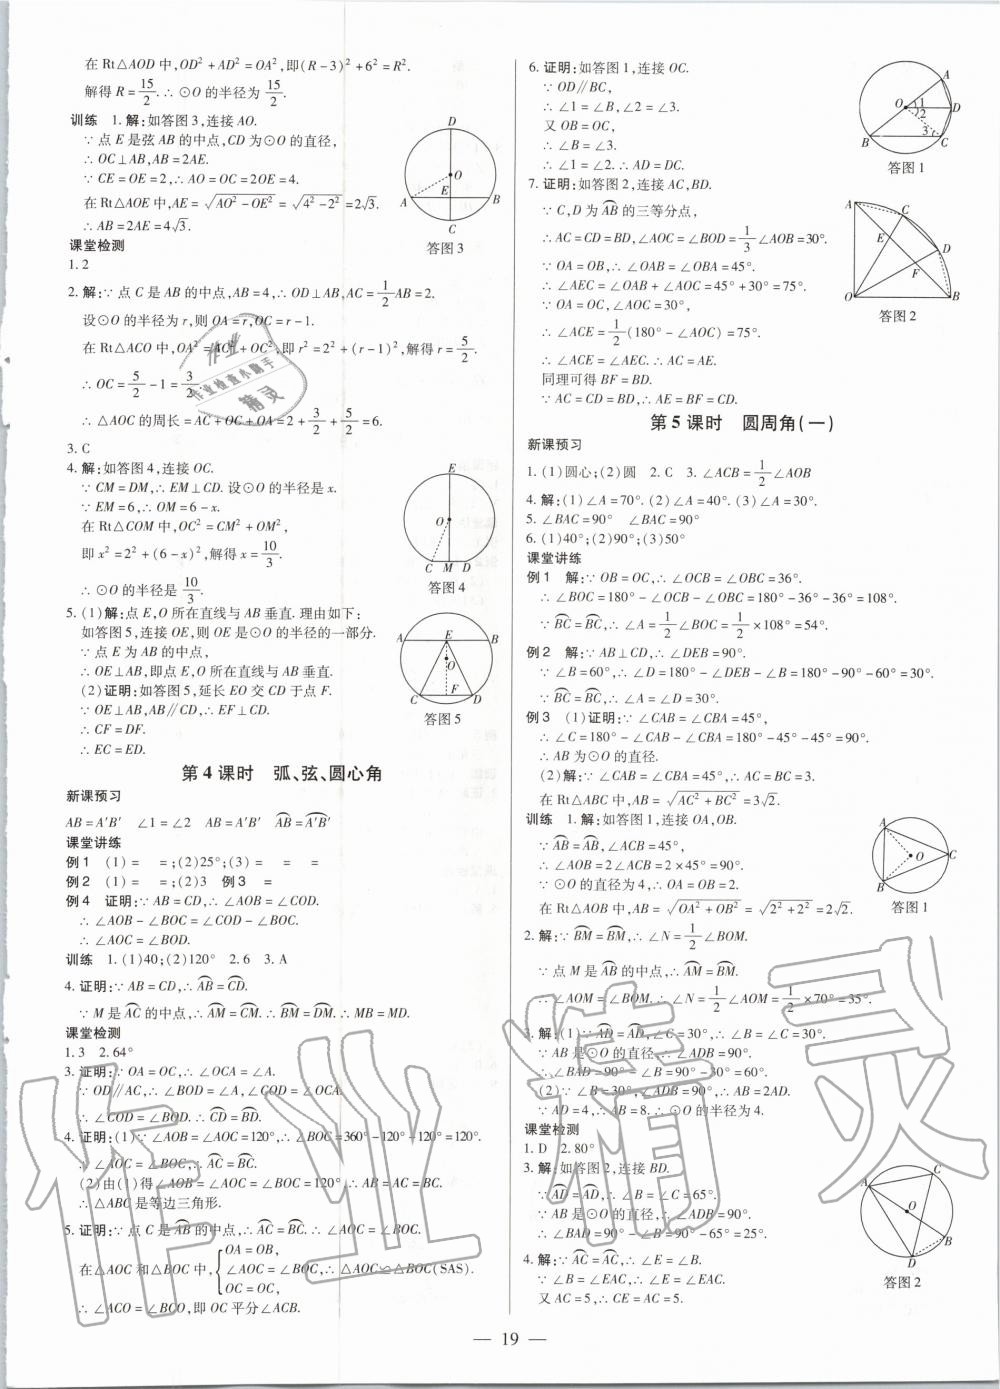 在 Rt△AOD 中,OD²+AD²=OA²,即(R-3)²+6²=R².
解得 R=15/2.∴⊙O 的半径为 15/2.
训练 1.解:如答图 3,连接 AO.
∵点 E 是弦 AB 的中点,CD 为⊙O 的直径,
∴OC⊥AB,AB=2AE.
∵CE=OE=2,∴AO=OC=2OE=4.
在 Rt△AOE 中,AE=√(AO²-OE²)=√(4²-2²)=2√3.
∴AB=2AE=4√3.
D
O
E
A
B
C
答图 3
课堂检测
1.2
2.解:∵点 C 是 AB 的中点,AB=4,∴OD⊥AB,AC=1/2AB=2.
设⊙O 的半径为 r,则 OA=r,OC=r-1.
在 Rt△ACO 中,OA²=AC²+OC²,即 r²=2²+(r-1)²,解得 r=5/2.
∴OC=5/2-1=3/2.
∴△AOC 的周长=AC+OC+OA=2+3/2+5/2=6.
3.C
4.解:如答图 4,连接 OC.
∵CM=DM,∴EM⊥CD.设⊙O 的半径是 x.
∵EM=6,∴OM=6-x.
在 Rt△COM 中,OC²=CM²+OM²,
即 x²=2²+(6-x)²,解得 x=10/3.
∴⊙O 的半径是 10/3.
E
O
C M D
答图 4
5.(1)解:点 E,O 所在直线与 AB 垂直.理由如下:
如答图 5,连接 OE,则 OE 是⊙O 的半径的一部分.
∵点 E 为 AB 的中点,
∴OE⊥AB,即点 E,O 所在直线与 AB 垂直.
(2)证明:如答图 5,延长 EO 交 CD 于点 F.
∵OE⊥AB,AB∥CD,∴EF⊥CD.
∴CF=DF.
∴EC=ED.
A E B
O
F
C D
答图 5
第 4 课时 弧、弦、圆心角
新课预习
AB=A′B′ ∠1=∠2 AB=A′B′ A͡B=A͡′B′
课堂讲练
例 1 (1)= =;(2)25°;(3)= = =
例 2 (1)=;(2)3 例 3 =
例 4 证明:∵AB=CD,∴∠AOB=∠COD.
∴∠AOB-∠BOC=∠COD-∠BOC.
∴∠AOC=∠BOD.
训练 1.(1)40;(2)120° 2.6 3.A
4.证明:∵AB=CD,∴A͡B=C͡D.
∵M 是A͡C的中点,∴A͡M=C͡M.∴B͡M=D͡M.∴MB=MD.
课堂检测
1.3 2.64°
3.证明:∵OA=OC,∴∠OCA=∠A.
∵OD∥AC,∴∠BOD=∠A,∠COD=∠OCA.
∴∠COD=∠BOD.∴C͡D=B͡D.
4.证明:(1)∵∠AOB=∠AOC=120°,∴∠BOC=360°-120°-120°=120°.
∴∠AOC=∠BOC,∴A͡C=B͡C.
(2)由(1)得∠AOB=∠AOC=∠BOC=120°,∴AB=AC=BC.
∴△ABC 是等边三角形.
5.证明:∵点 C 是A͡B的中点,∴A͡C=B͡C.∴∠AOC=∠BOC.
在△AOC 和△BOC 中,{OA=OB,
∠AOC=∠BOC,∴△AOC∽△BOC(SAS).
OC=OC,
∴∠ACO=∠BCO,即 OC 平分∠ACB.
6.证明:如答图 1,连接 OC.
∵OD∥BC,
∴∠1=∠B,∠2=∠3.
又 OB=OC,
∴∠B=∠3.
∴∠1=∠2.∴AD=DC.
A
O 1
2
D
3
B C
答图 1
7.证明:如答图 2,连接 AC,BD.
∵C,D 为A͡B的三等分点,
∴AC=CD=BD,∠AOC=∠BOD=1/3∠AOB=30°.
∵OA=OB,∴∠OAB=∠OBA=45°.
∴∠AEC=∠OAB+∠AOC=45°+30°=75°.
∵OA=OC,∠AOC=30°,
∴∠ACE=1/2(180°-∠AOC)=75°.
∴∠ACE=∠AEC.∴AC=AE.
同理可得 BF=BD.
∵AC=CD=BD,∴AE=BF=CD.
A
C
E
D
F
O B
答图 2
第 5 课时 圆周角(一)
新课预习
1.(1)圆心;(2)圆 2.C 3.∠ACB=1/2∠AOB
4.解:(1)∠A=70°.(2)∠A=40°.(3)∠A=30°.
5.∠BAC=90° ∠BAC=90°
6.(1)40°;(2)90°;(3)50°
课堂讲练
例 1 解:∵OB=OC,∴∠OCB=∠OBC=36°.
∴∠BOC=180°-∠OCB-∠OBC=180°-36°-36°=108°.
∵B͡C=B͡C,∴∠A=1/2∠BOC=1/2×108°=54°.
例 2 解:∵AB⊥CD,∴∠DEB=90°.
∵∠B=60°,∴∠D=180°-∠DEB-∠B=180°-90°-60°=30°.
∵B͡C=B͡C,∴∠A=∠D=30°.
例 3 (1)证明:∵∠CAB=∠CBA=45°,
∴∠C=180°-∠CAB-∠CBA=180°-45°-45°=90°.
∴AB 为⊙O 的直径.
(2)解:∵∠CAB=∠CBA=45°,∴AC=BC=3,
在 Rt△ABC 中,AB=√(AC²+BC²)=3√2.
训练 1.解:如答图 1,连接 OA,OB.
∵A͡B=A͡B,∠ACB=45°,
∴∠AOB=2∠ACB=2×45°=90°.
∵⊙O 的直径为 4,∴OA=OB=2.
在 Rt△AOB 中,AB=√(OA²+OB²)=√(2²+2²)=2√2.
A
O C
B
答图 1
2.解:∵B͡M=B͡M,∴∠N=1/2∠BOM.
∵点 M 是A͡B的中点,∴A͡M=B͡M.
∴∠AOM=∠BOM.∴∠N=1/2∠AOM=1/2×70°=35°.
3.解:(1)∵A͡D=A͡D,∠C=30°,∴∠B=∠C=30°.
∵AB 是⊙O 的直径,∴∠ADB=90°.
∴∠BAD=90°-∠B=90°-30°=60°.
(2)∵∠B=30°,∠ADB=90°,∴AB=2AD.
∵AD=4,∴AB=8.∴⊙O 的半径为 4.
课堂检测
1.D 2.80°
3.解:如答图 2,连接 BD.
∵A͡D=A͡D,∴∠B=∠C=65°.
∵AB 是⊙O 的直径,∴∠ADB=90°.
∴∠BAD=90°-∠B=90°-65°=25°.
4.解:∵A͡C=A͡C,∴∠E=∠B.
∵∠B=∠EAC,∴∠E=∠EAC.
又 AC=5,∴CE=AC=5.
C
A
O
B
D
答图 2
— 19 —
作业精灵
作业
作业检查小助手
精灵